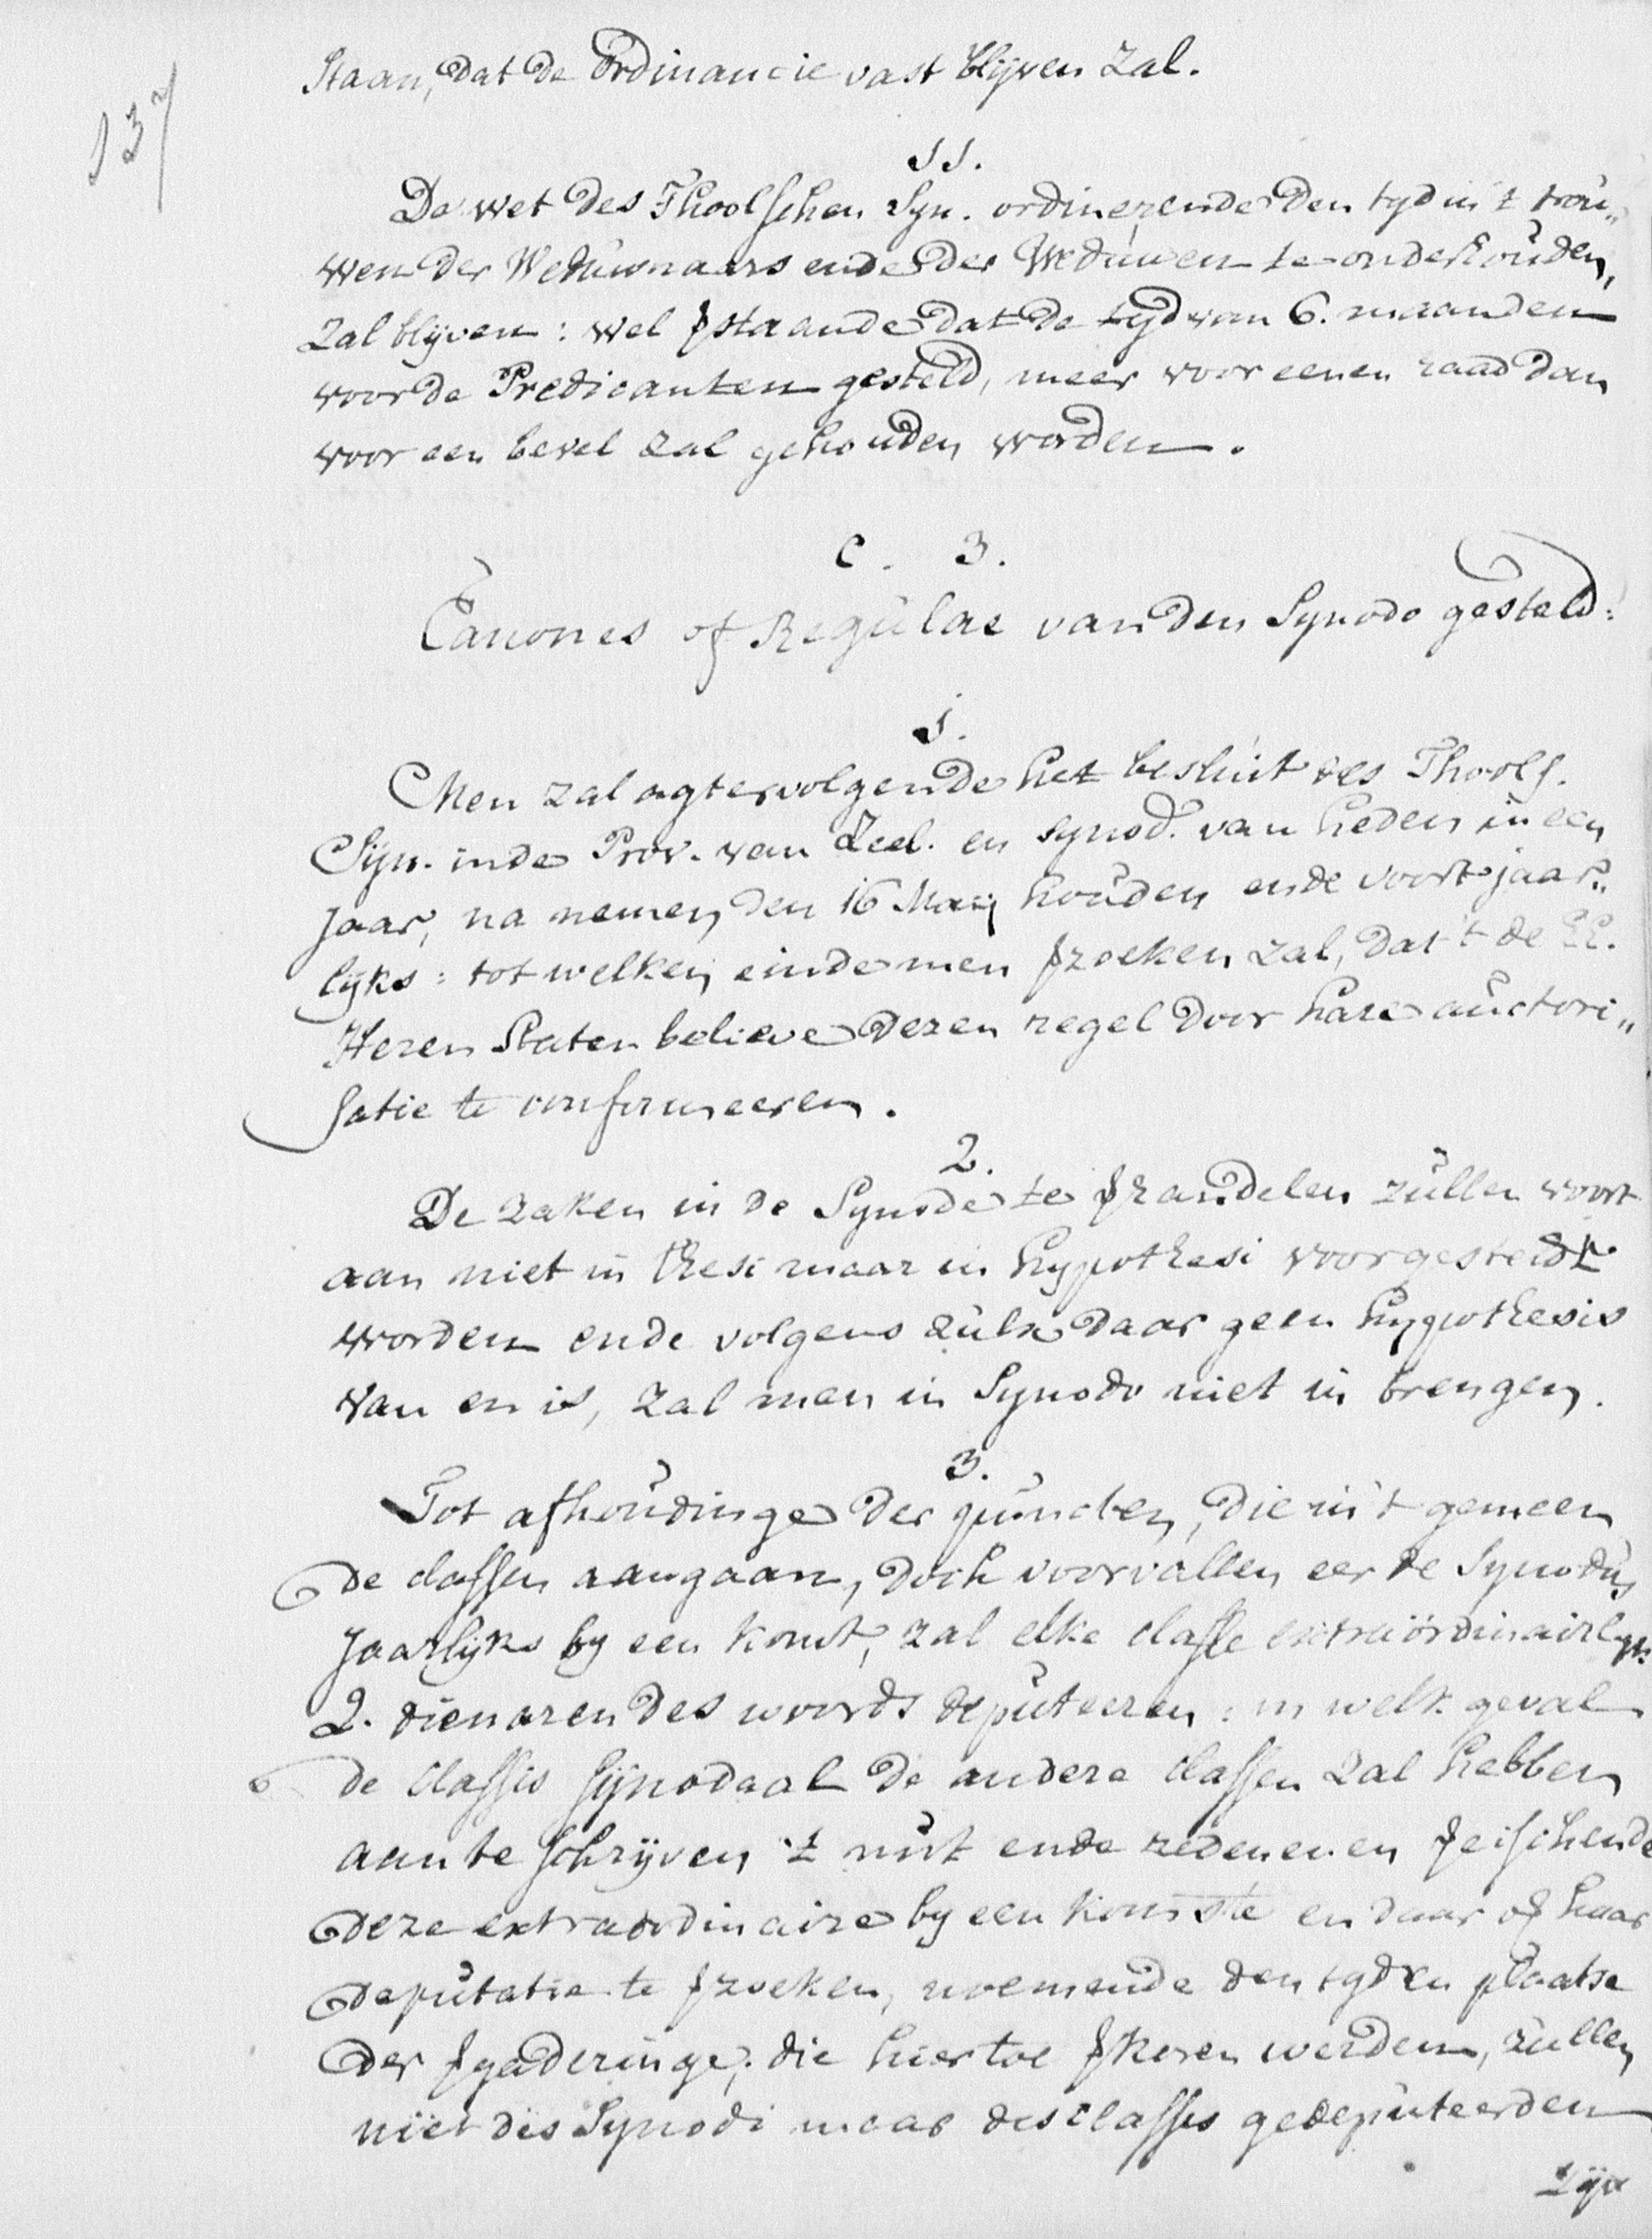 137
Staan, dat de ordinancie vast blijven zal.
11.
De wet des Thoolschen Syn. ordinerende den tyd in 't trou„
wen der Weduwnaars ende der Weduwen te onderhouden,
zal blijven: wel ƒstaande dat de tyd van 6. maanden
voor de Predicanten gesteld, meer voor eenen raad dan
voor een bevel zal gehouden worden.
C. 3.
Canones of Regulae van den Synodo gesteld:
1.
Men zal agtervolgende het besluit des Thools.
Syn. in de Prov. van Zeel. en synod. van heden in een
Jaar, na nemen den 16 Maij houden ende voort jaar„
lyks: tot welken einde men ƒzoeken zal, dat 't de EE.
Heren Staten believe dezen regel door hare auctori„
satie te confirmeeren.
2.
De zaken in de Synode te ƒhandelen zullen voort
aan niet in thesi maar in hypothesi voorgesteldt
worden ende volgens zulx daar geen hypothesis
van en is, zal men in Synodo niet in brengen.
3.
Tot afhoudinge der puncten, die in 't gemeen
de classen aangaan, doch voorvallen eer de Synodus
Jaarlyks by een komt, zal elke classe extraördinairlyk
2. dienaren des woords deputeeren: in welk geval
de classis synodaal de andere classen zal hebben
aan te schryven 't nut ende redenen en ƒeischende
deze extraordinaire by een komste en daar of haar
deputatie te ƒzoeken, noemende den tyd en plaatse
der ƒgaderinge; die hier toe ƒkoren werden, zullen
niet des Synodi maar des classis gedeputeerden
zijn